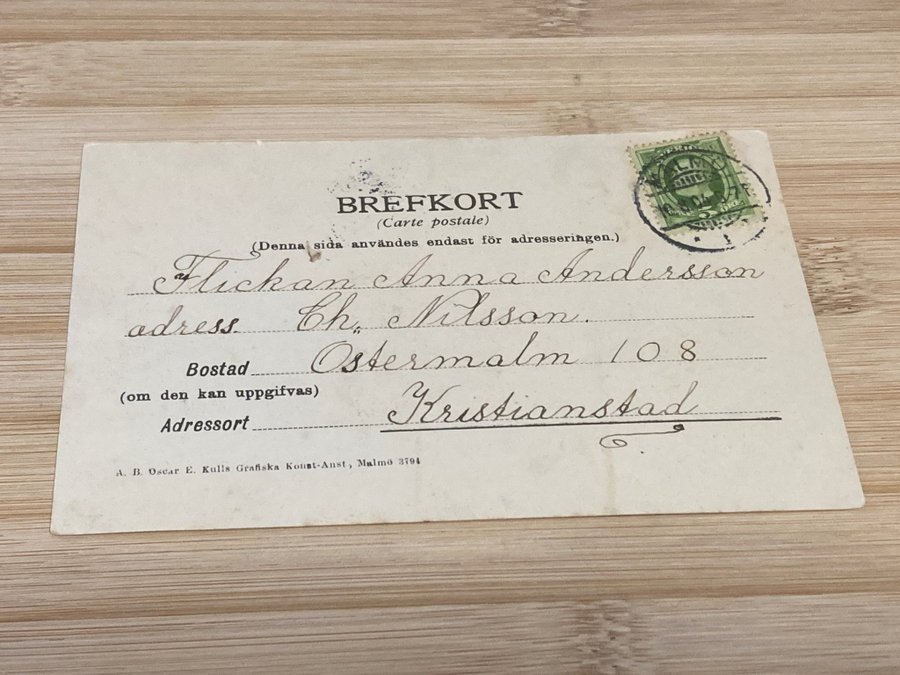 BREFKORT
(Carte postale)
(Denna sida användes endast för adresseringen.)
Flickan Anna Andersson
adress. Ch. Nilsson.
Bostad Östermalm 108
(om den kan uppgifvas)
Adressort Kristianstad
A. B. Oscar E. Kulls Grafiska Konst-Anst., Malmö 3794